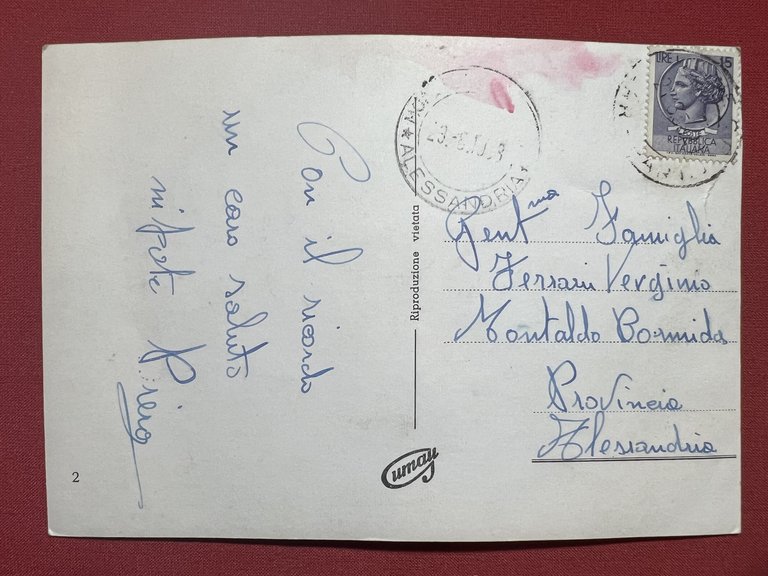 Con il ricordo
un caro saluto
nipote Piera
2
Riproduzione vietata
Cumay
ALESSANDRIA
LIRE 15
POSTE
REPUBBLICA
ITALIANA
Gent.ma Famiglia
Ferrari Vergimo
Montaldo Bormida
Provincia
Alessandria